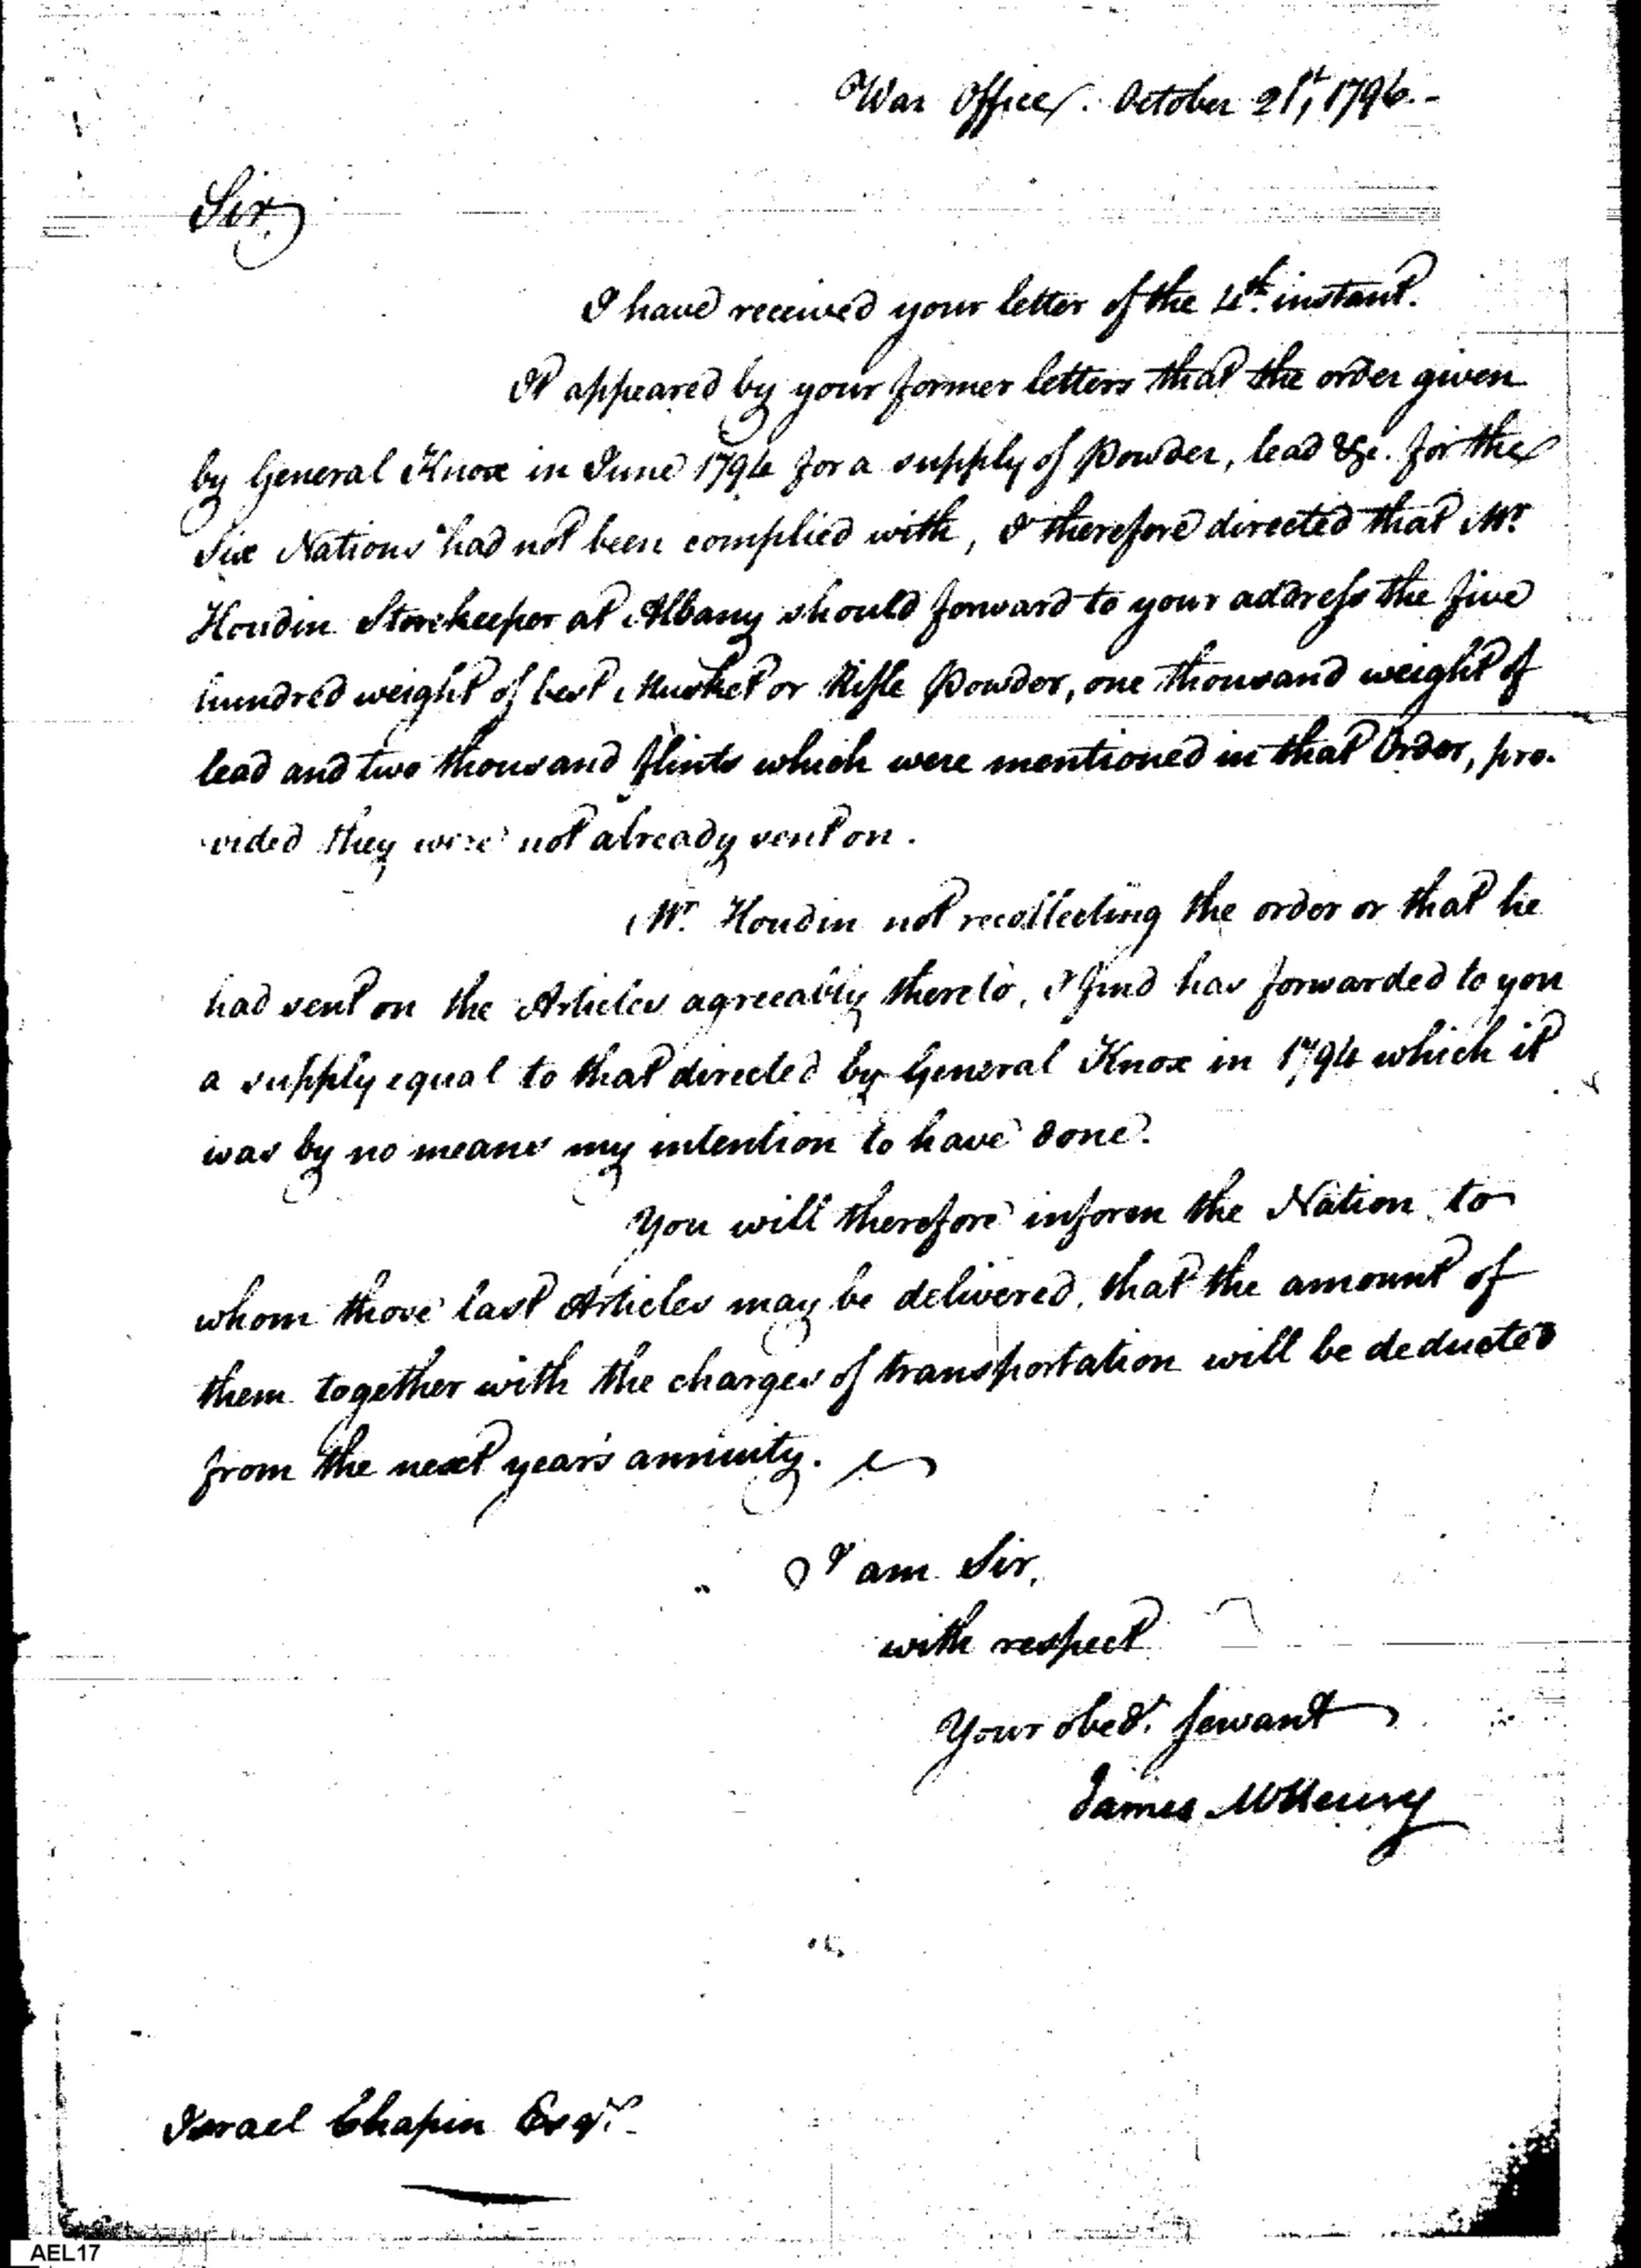 War Office. October 21st, 1796.-
Sir,
I have received your letter of the 4th. instant.
It appeared by your former letters that the order given
by General Knox in June 1794 for a supply of Powder, lead &c. for the
Six Nations had not been complied with, I therefore directed that Mr.
Houdin Storekeeper at Albany should forward to your address the five
hundred weight of best Musket or Rifle Powder, one thousand weight of
lead and two thousand flints which were mentioned in that Order, pro-
vided they were not already sent on.
Mr. Houdin not recollecting the order or that he
had sent on the Articles agreeably thereto, I find has forwarded to you
a supply equal to that directed by General Knox in 1794 which it
was by no means my intention to have done.
You will therefore inform the Nation to
whom those last Articles may be delivered, that the amount of
them together with the charges of transportation will be deducted
from the next year's annuity.
I am Sir,
with respect
Your obedt. Servant
James McHenry
Israel Chapin Esqr.
AEL17